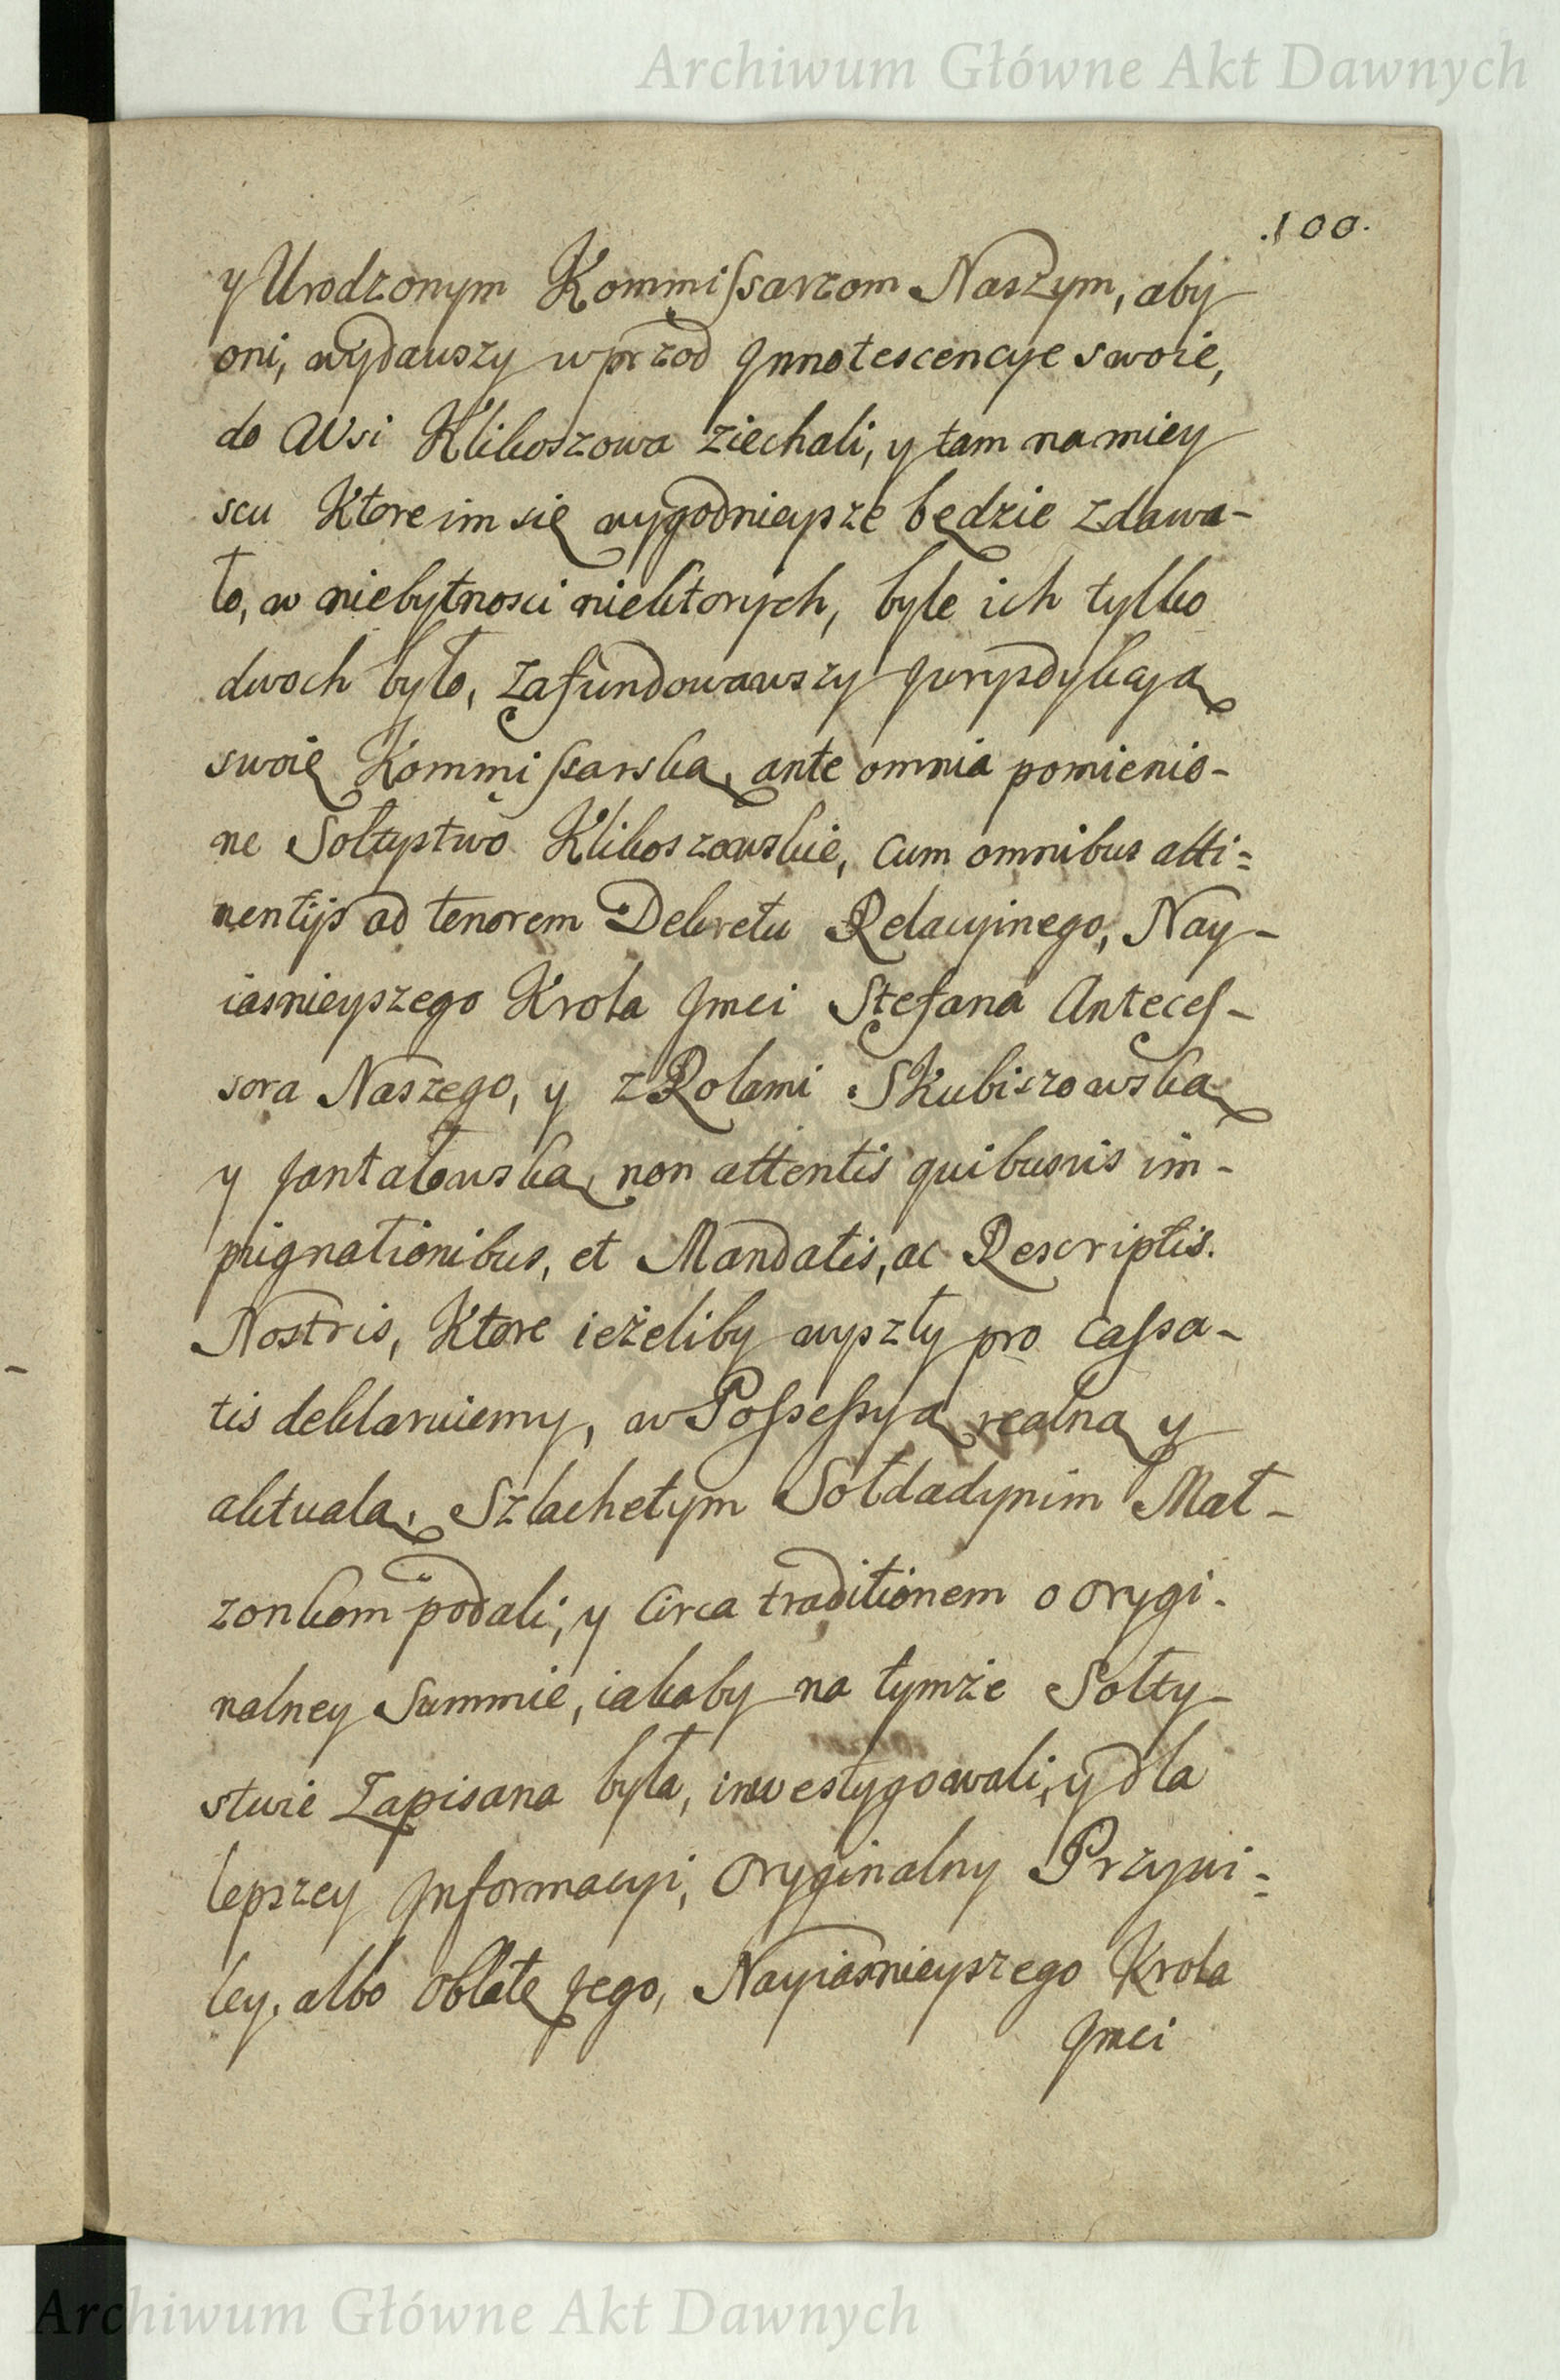 Archiwum Główne Akt Dawnych
.100.
y Urodzonym Kommissarzom Naszym, aby
oni, wydawszy wprzod Innotescencye swoie,
do Wsi Klikoszowa ziechali, y tam na miey
scu Ktore im się wygodnieysze będzie zdawa-
ło, w niebytnosci niektorych, byle ich tylko
dwoch było, Zafundowawszy Jurysdykcyą
swoię Kommissarską, ante omnia pomienio-
ne Sołtystwo Klikoszowskie, cum omnibus atti=
nentijs ad tenorem Dekretu Relacyinego, Nay-
iasnieyszego Krola Jmci Stefana Anteces-
sora Naszego, y z Rolami Skubiszowską
y Jantałowską, non attentis quibusvis im-
pugnationibus, et Mandatis, ac Rescriptis.
Nostris, Ktore ieżeliby wyszły pro cassa-
tis deklaruiemy, w Possessyą realną y
aktualą, Szlachetym Sołdadynim Mał-
zonkom podali; y Circa traditionem o orygi-
nalney Summie, iakaby na tymże Sołty-
stwie Zapisana była, inwestygowali, y dla
lepszey Jnformacyi, Oryginalny Przywi=
ley, albo Oblatę Jego, Nayiasnieyszego Krola
Jmci
Archiwum Główne Akt Dawnych